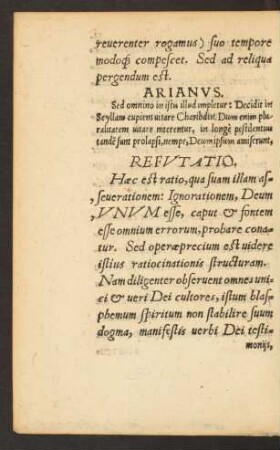 reuerenter rogamus) suo tempore
modoq́; compescet. Sed ad reliqua
pergendum est.
ARIANVS.
Sed omnino in istis illud impletur: Decidit in
Scyllam cupiens uitare Charibdin. Dum enim plu-
ralitatem uitare nterentur, in longè pestilentius
tandē sunt prolapsi, nempe, Deum ipsum amiserunt,
REFVTATIO,
Hæc est ratio, qua suam illam as-
seuerationem: Ignorationem, Deum
VNVM esse, caput & fontem
esse omnium errorum, probare cona-
tur. Sed operæprecium est uidere
istius ratiocinationis structuram.
Nam diligenter obseruent omnes uni-
ci & ueri Dei cultores, istum blas-
phemum spiritum non stabilire suum
dogma, manifestis uerbi Dei testi-
monijs,